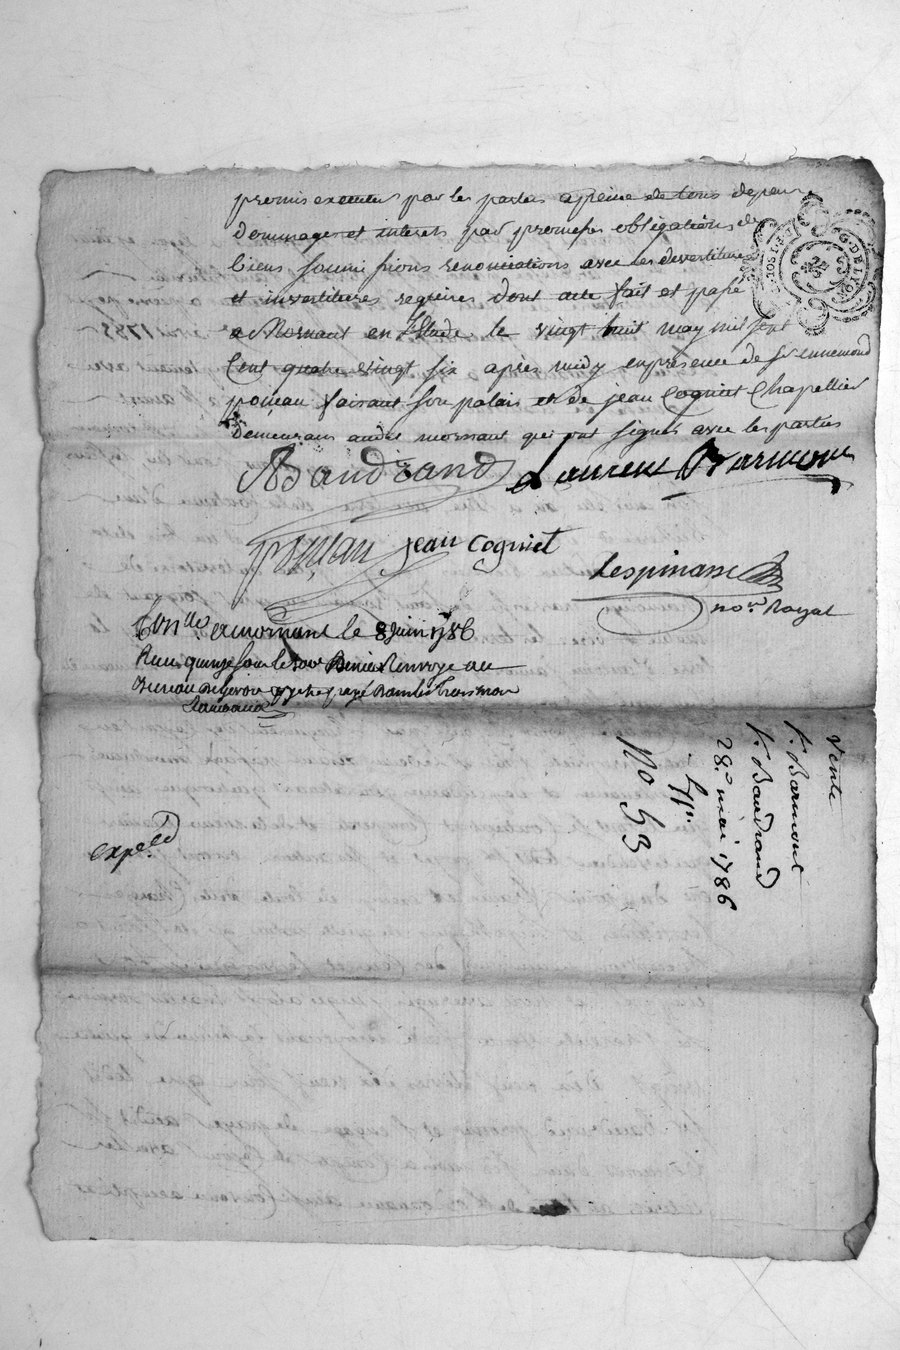 promis executer par les parties a peine de tous depens
dommages et interets par promesses obligations de
biens soumissions renonciations avec les devestitures
et investitures requises dont acte fait et passé
a Mornant en l'Etude le vingt huit may mil sept
Cent quatre vingt six après midy en presence de sr ennemond
ponçan faisant son palais et de jean Cogniet Chapellier
demeurans audit mornant qui ont signés avec les parties
Baudrand Laurent Barmont
ponçan jean cogniet
Lespinasse
nore. Royal
Conlle a mornant le 8 juin 1786
Recu quinze sols le sr Renvoyé au
Bureau de
expeéd
Vente
sr. Barmont
sr. Baudrand
28e. mai 1786
No 53
G. DE LION